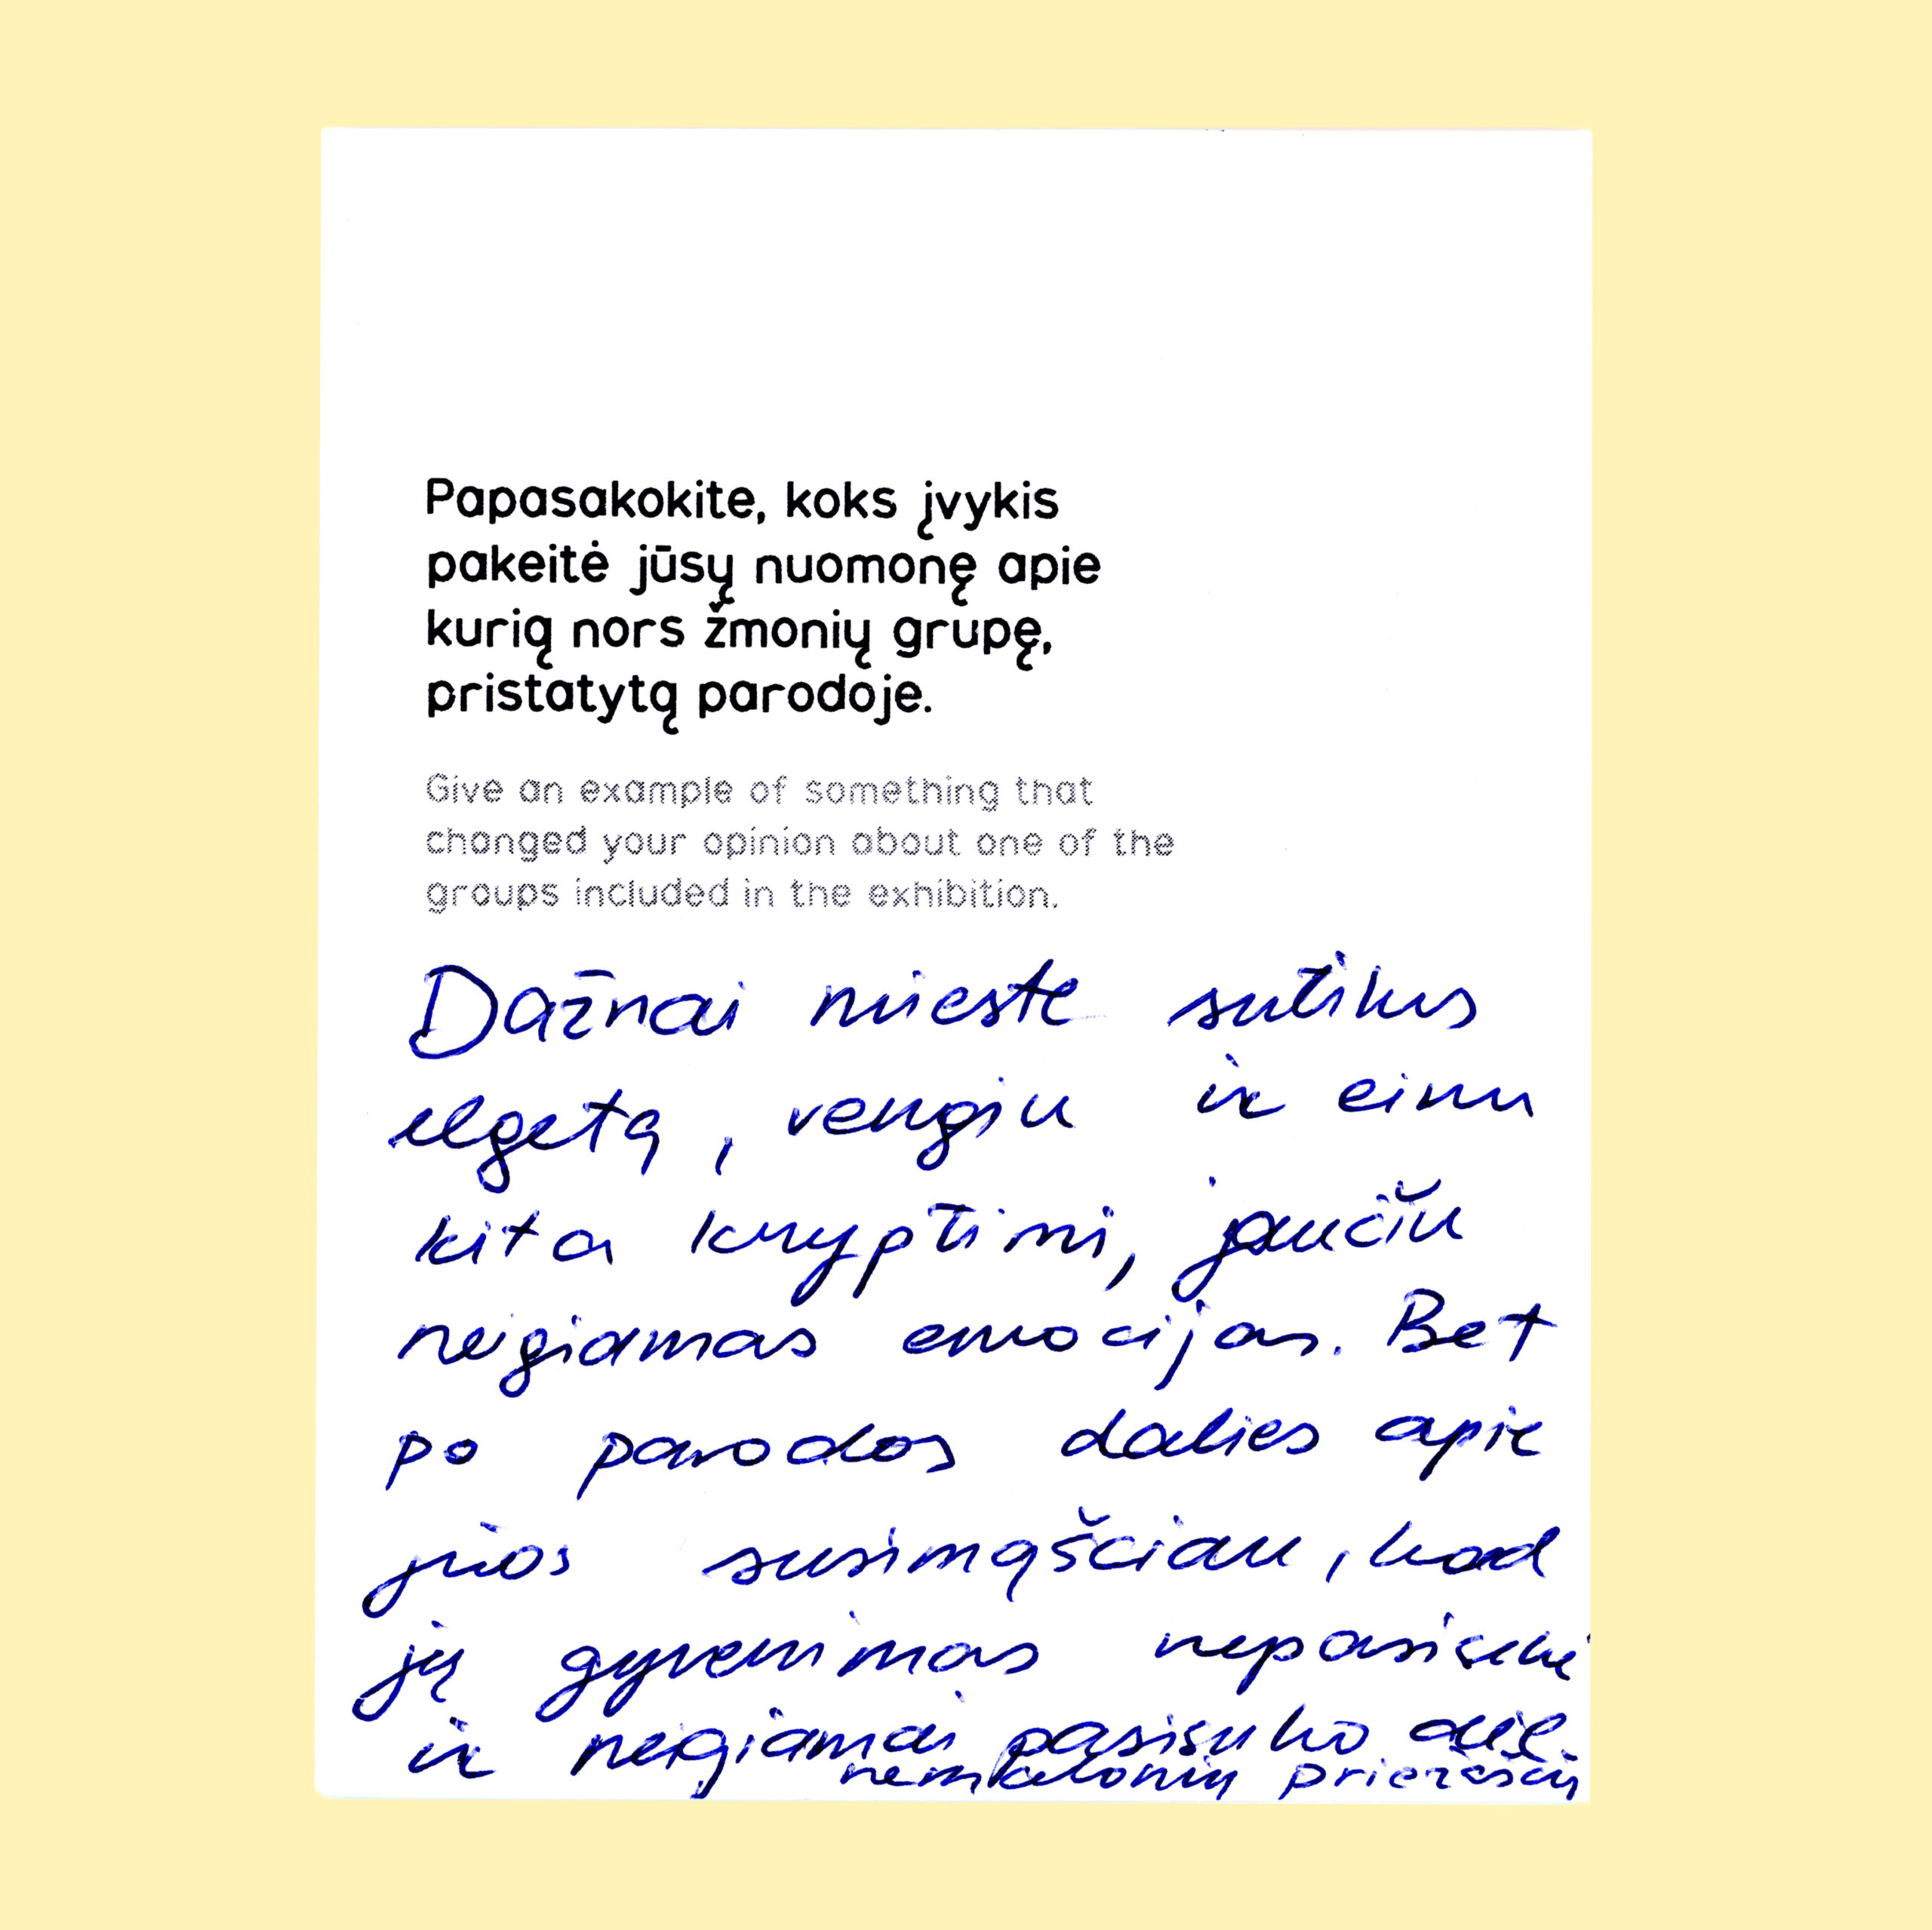 Papasakokite, koks įvykis
pakeitė jūsų nuomonę apie
kurią nors žmonių grupę,
pristatytą parodoje.
Give an example of something that
changed your opinion about one of the
groups included in the exhibition.
Dažnai mieste sutikus
elgetą, vengiu ir einu
kita kryptimi, jaučiu
neigiamas emocijas. Bet
po parodos dalies apie
juos susimąsčiau, kad
jų gyvenimas
ir neigiamai pasisuko dėl
nemalonių priežasčių